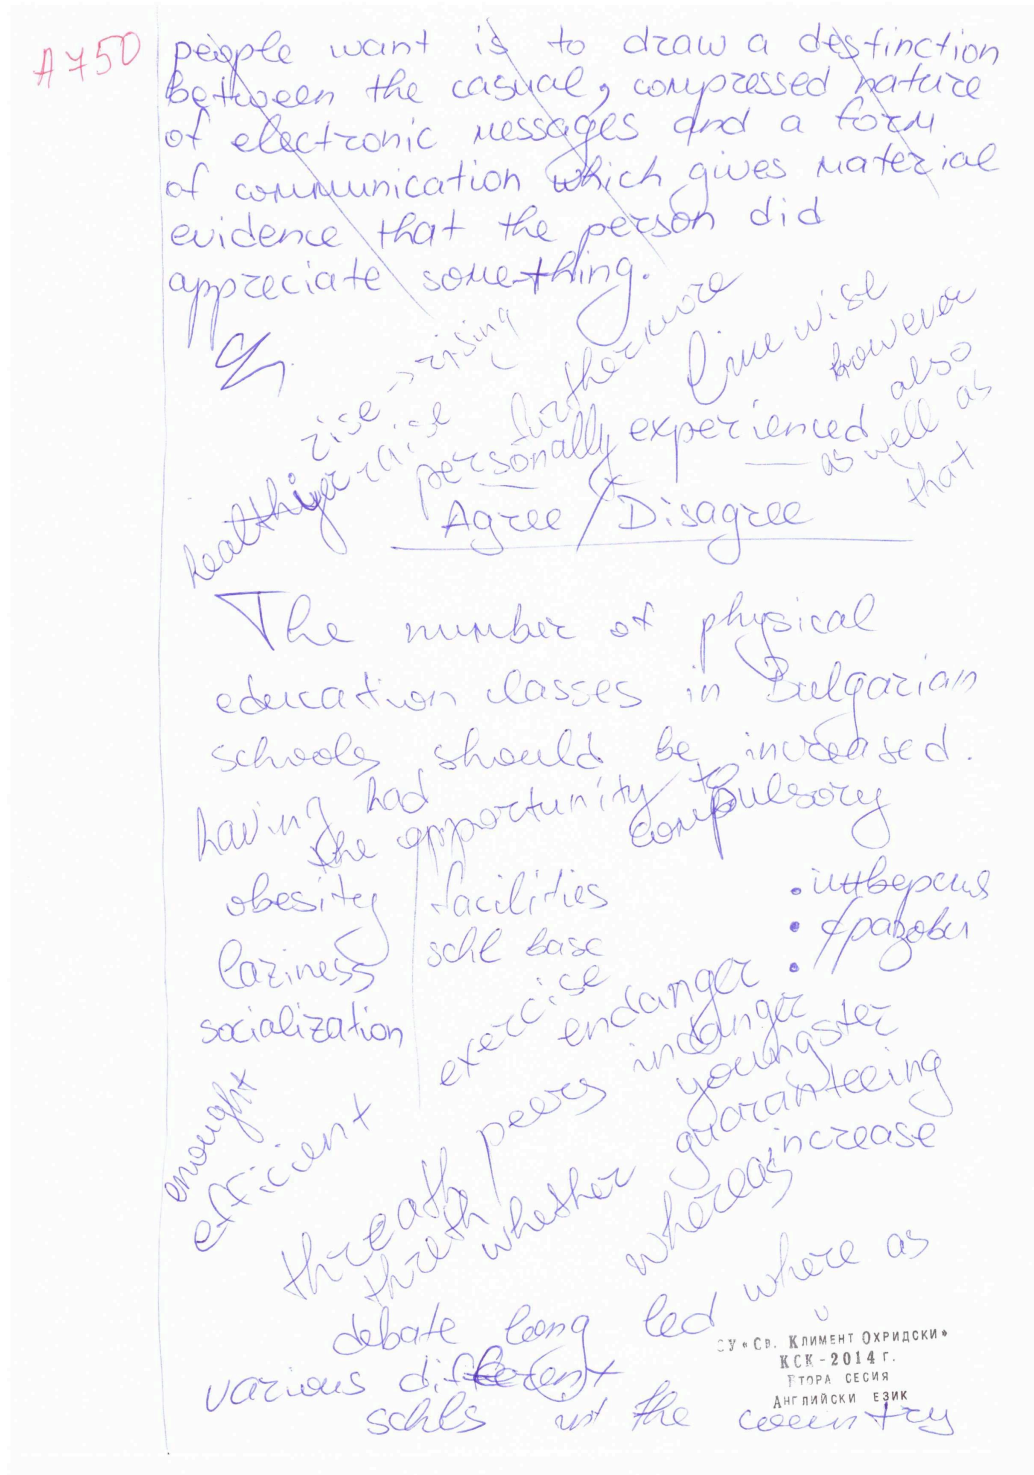 A750
people want is to draw a destinction
between the casual, compressed nature
of electronic messages and a form
of communication which gives material
evidence that the person did
appreciate something.
rise -> rising
raise
furthermore
however
also
as well as
that
healthiyer
personally experienced
Agree / Disagree
The number of physical
education classes in Bulgarian
schools should be increased.
having had
the opportunity to
compulsory
obesity
facilities
• инверсия
laziness
schl base
• фразови
•
socialization
exercise
endanger
indanger
youngster
peers
guaranteeing
increase
enought
efficient
threath
threth
whether
whereas
where as
debate long led
various different
schls in the country
СУ "Св. Климент Охридски"
КСК - 2014 г.
Втора сесия
Английски език